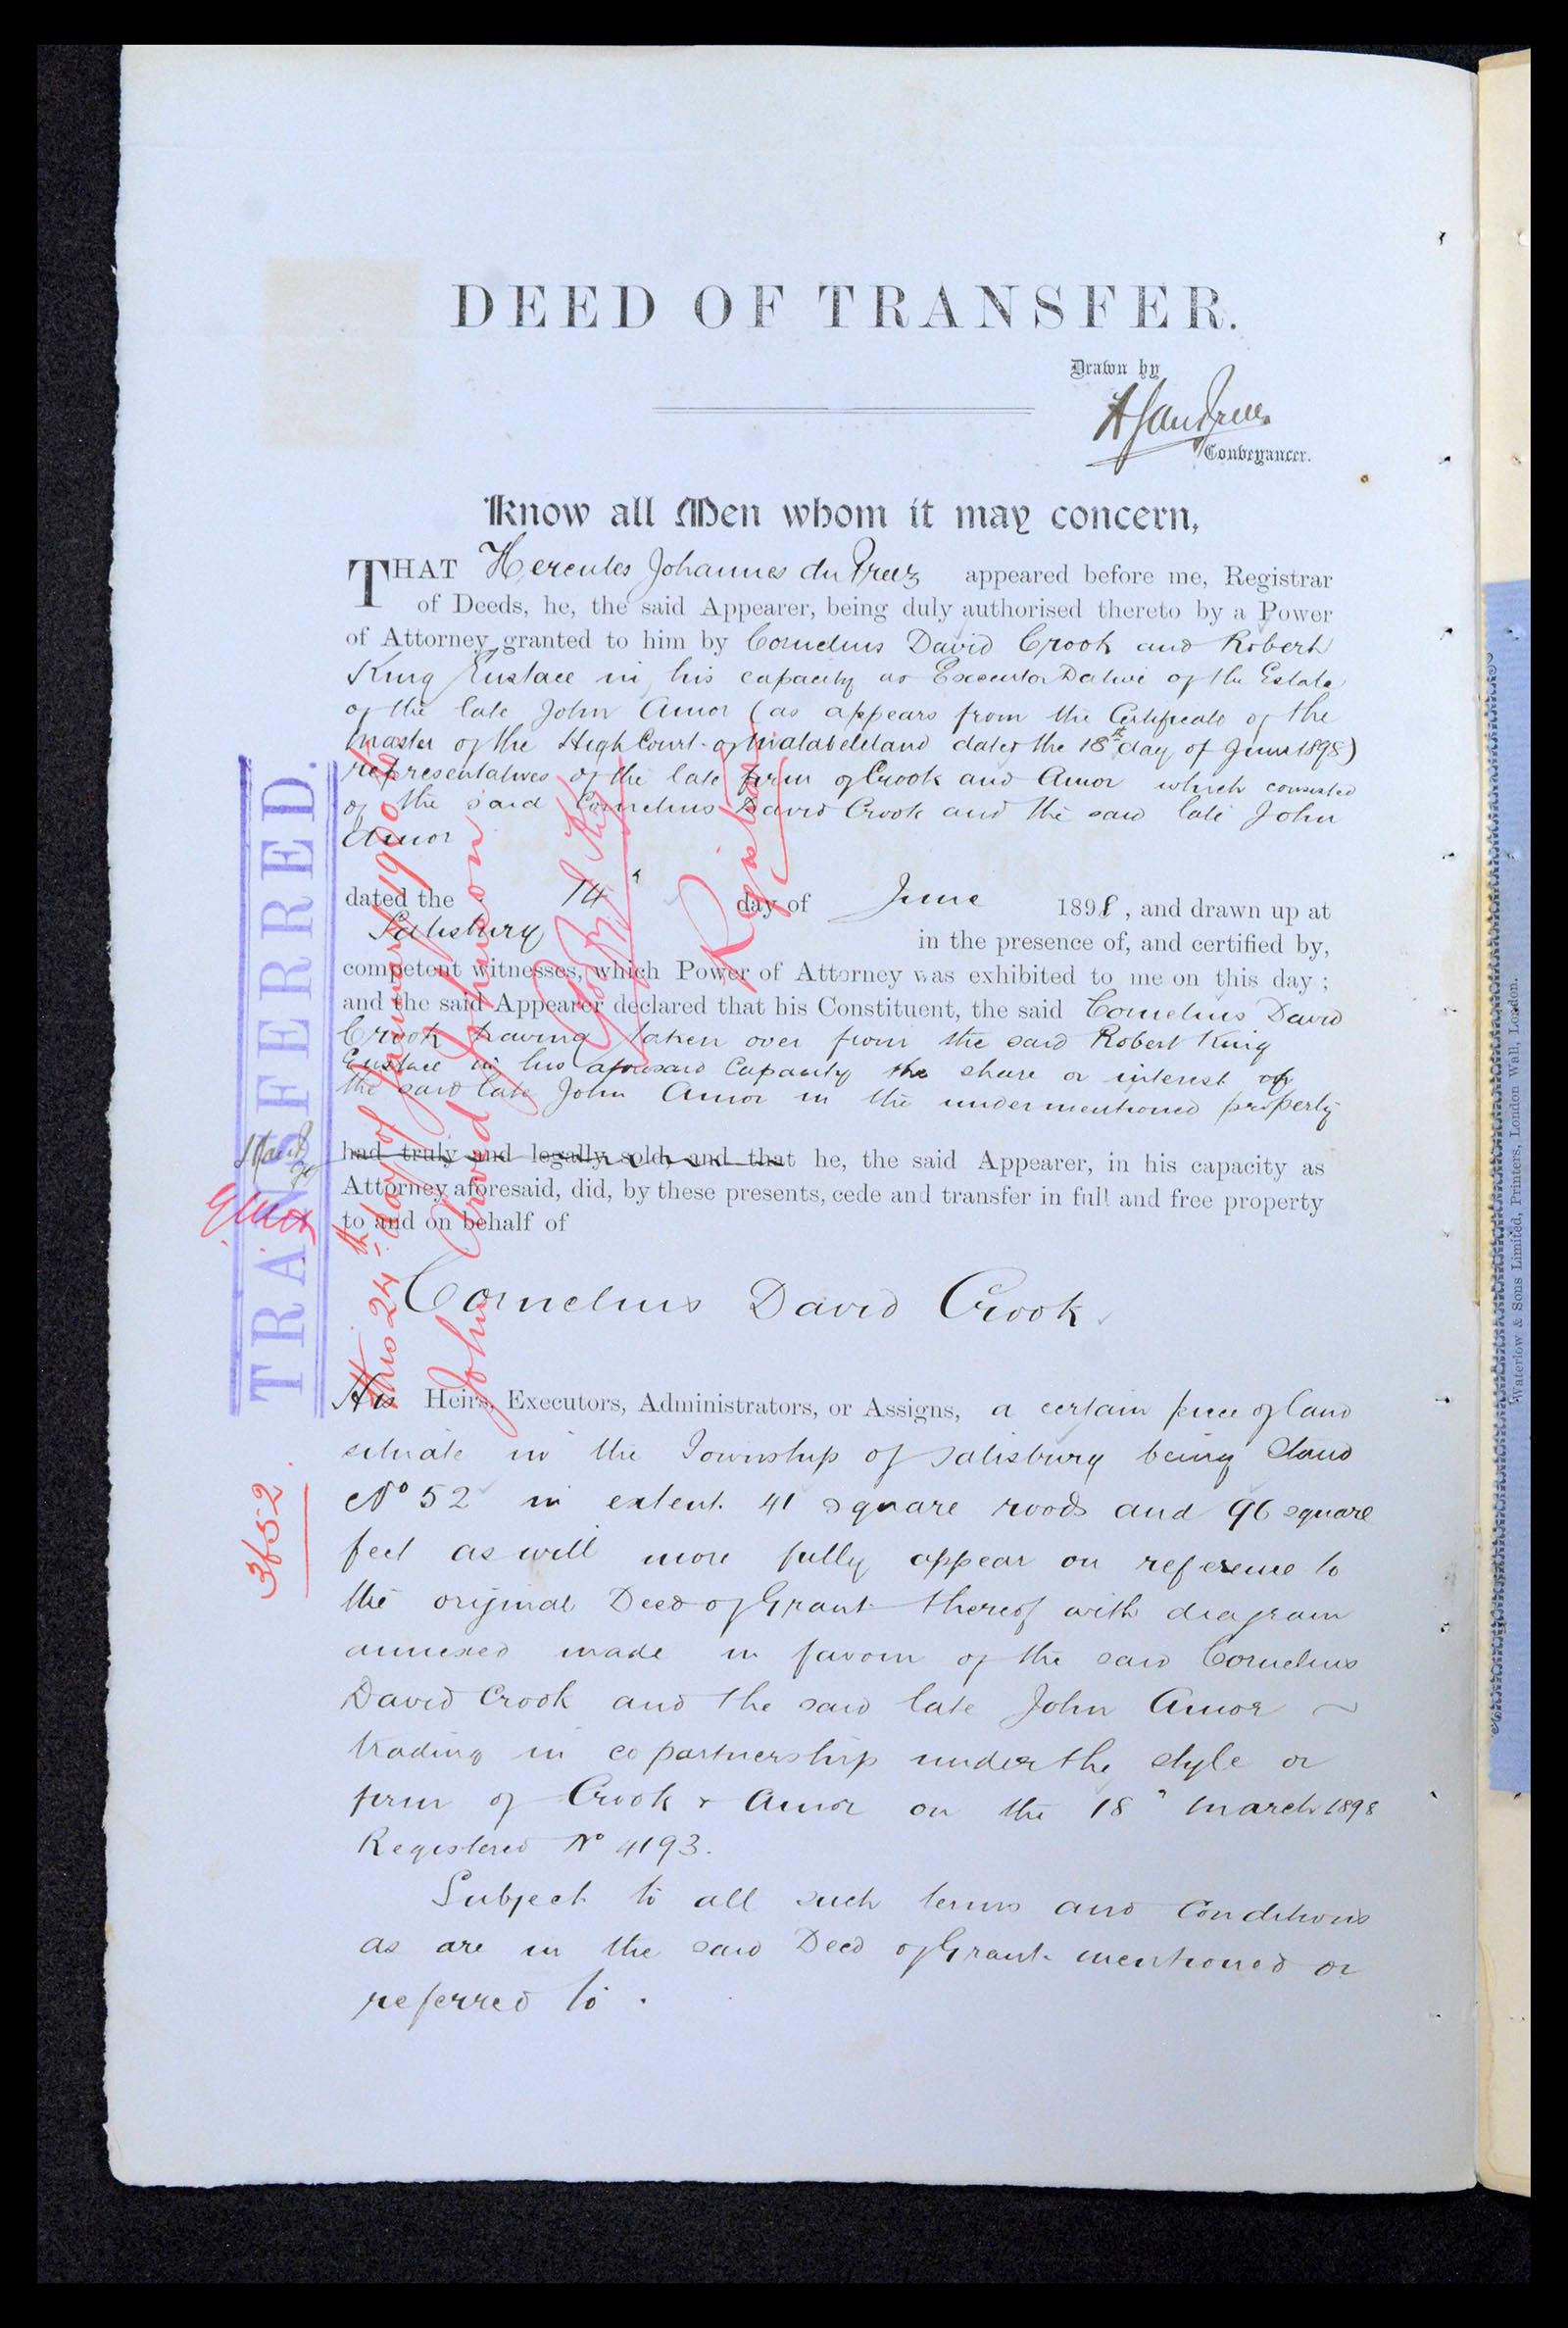 DEED OF TRANSFER.
Drawn by
Conveyancer.
Know all Men whom it may concern,
THAT Hercules Johannes du Preez appeared before me, Registrar
of Deeds, he, the said Appearer, being duly authorised thereto by a Power
of Attorney granted to him by Cornelius David Crook and Robert
King Eustace in his capacity as Executor Dative of the Estate
of the late John Amor (as appears from the Certificate of the
Master of the High Court of Matabeleland dated the 18th day of June 1898)
representatives of the late firm of Crook and Amor which consisted
of the said Cornelius David Crook and the said late John
Amor
dated the 14" day of June 1898, and drawn up at
Salisbury in the presence of, and certified by,
competent witnesses, which Power of Attorney was exhibited to me on this day ;
and the said Appearer declared that his Constituent, the said Cornelius David
Crook having taken over from the said Robert King
Eustace in his aforesaid Capacity the share or interest of
the said late John Amor in the undermentioned property
had truly and legally sold, and that he, the said Appearer, in his capacity as
Attorney aforesaid, did, by these presents, cede and transfer in full and free property
to and on behalf of
Cornelius David Crook
His Heirs, Executors, Administrators, or Assigns, a certain piece of land
situate in the Township of Salisbury being Stand
No 52 in extent 41 square roods and 96 square
feet as will more fully appear on reference to
the original Deed of Grant thereof with diagram
annexed made in favour of the said Cornelius
David Crook and the said late John Amor ~
trading in copartnership under the style or
firm of Crook & Amor on the 18" March 1898
Registered No 4193.
Subject to all such terms and Conditions
as are in the said Deed of Grant mentioned or
referred to.
TRANSFERRED.
this 24th day of January 1900 to
John Crowd Johnson
Registrar
3652
Waterlow & Sons Limited, Printers, London Wall, London.